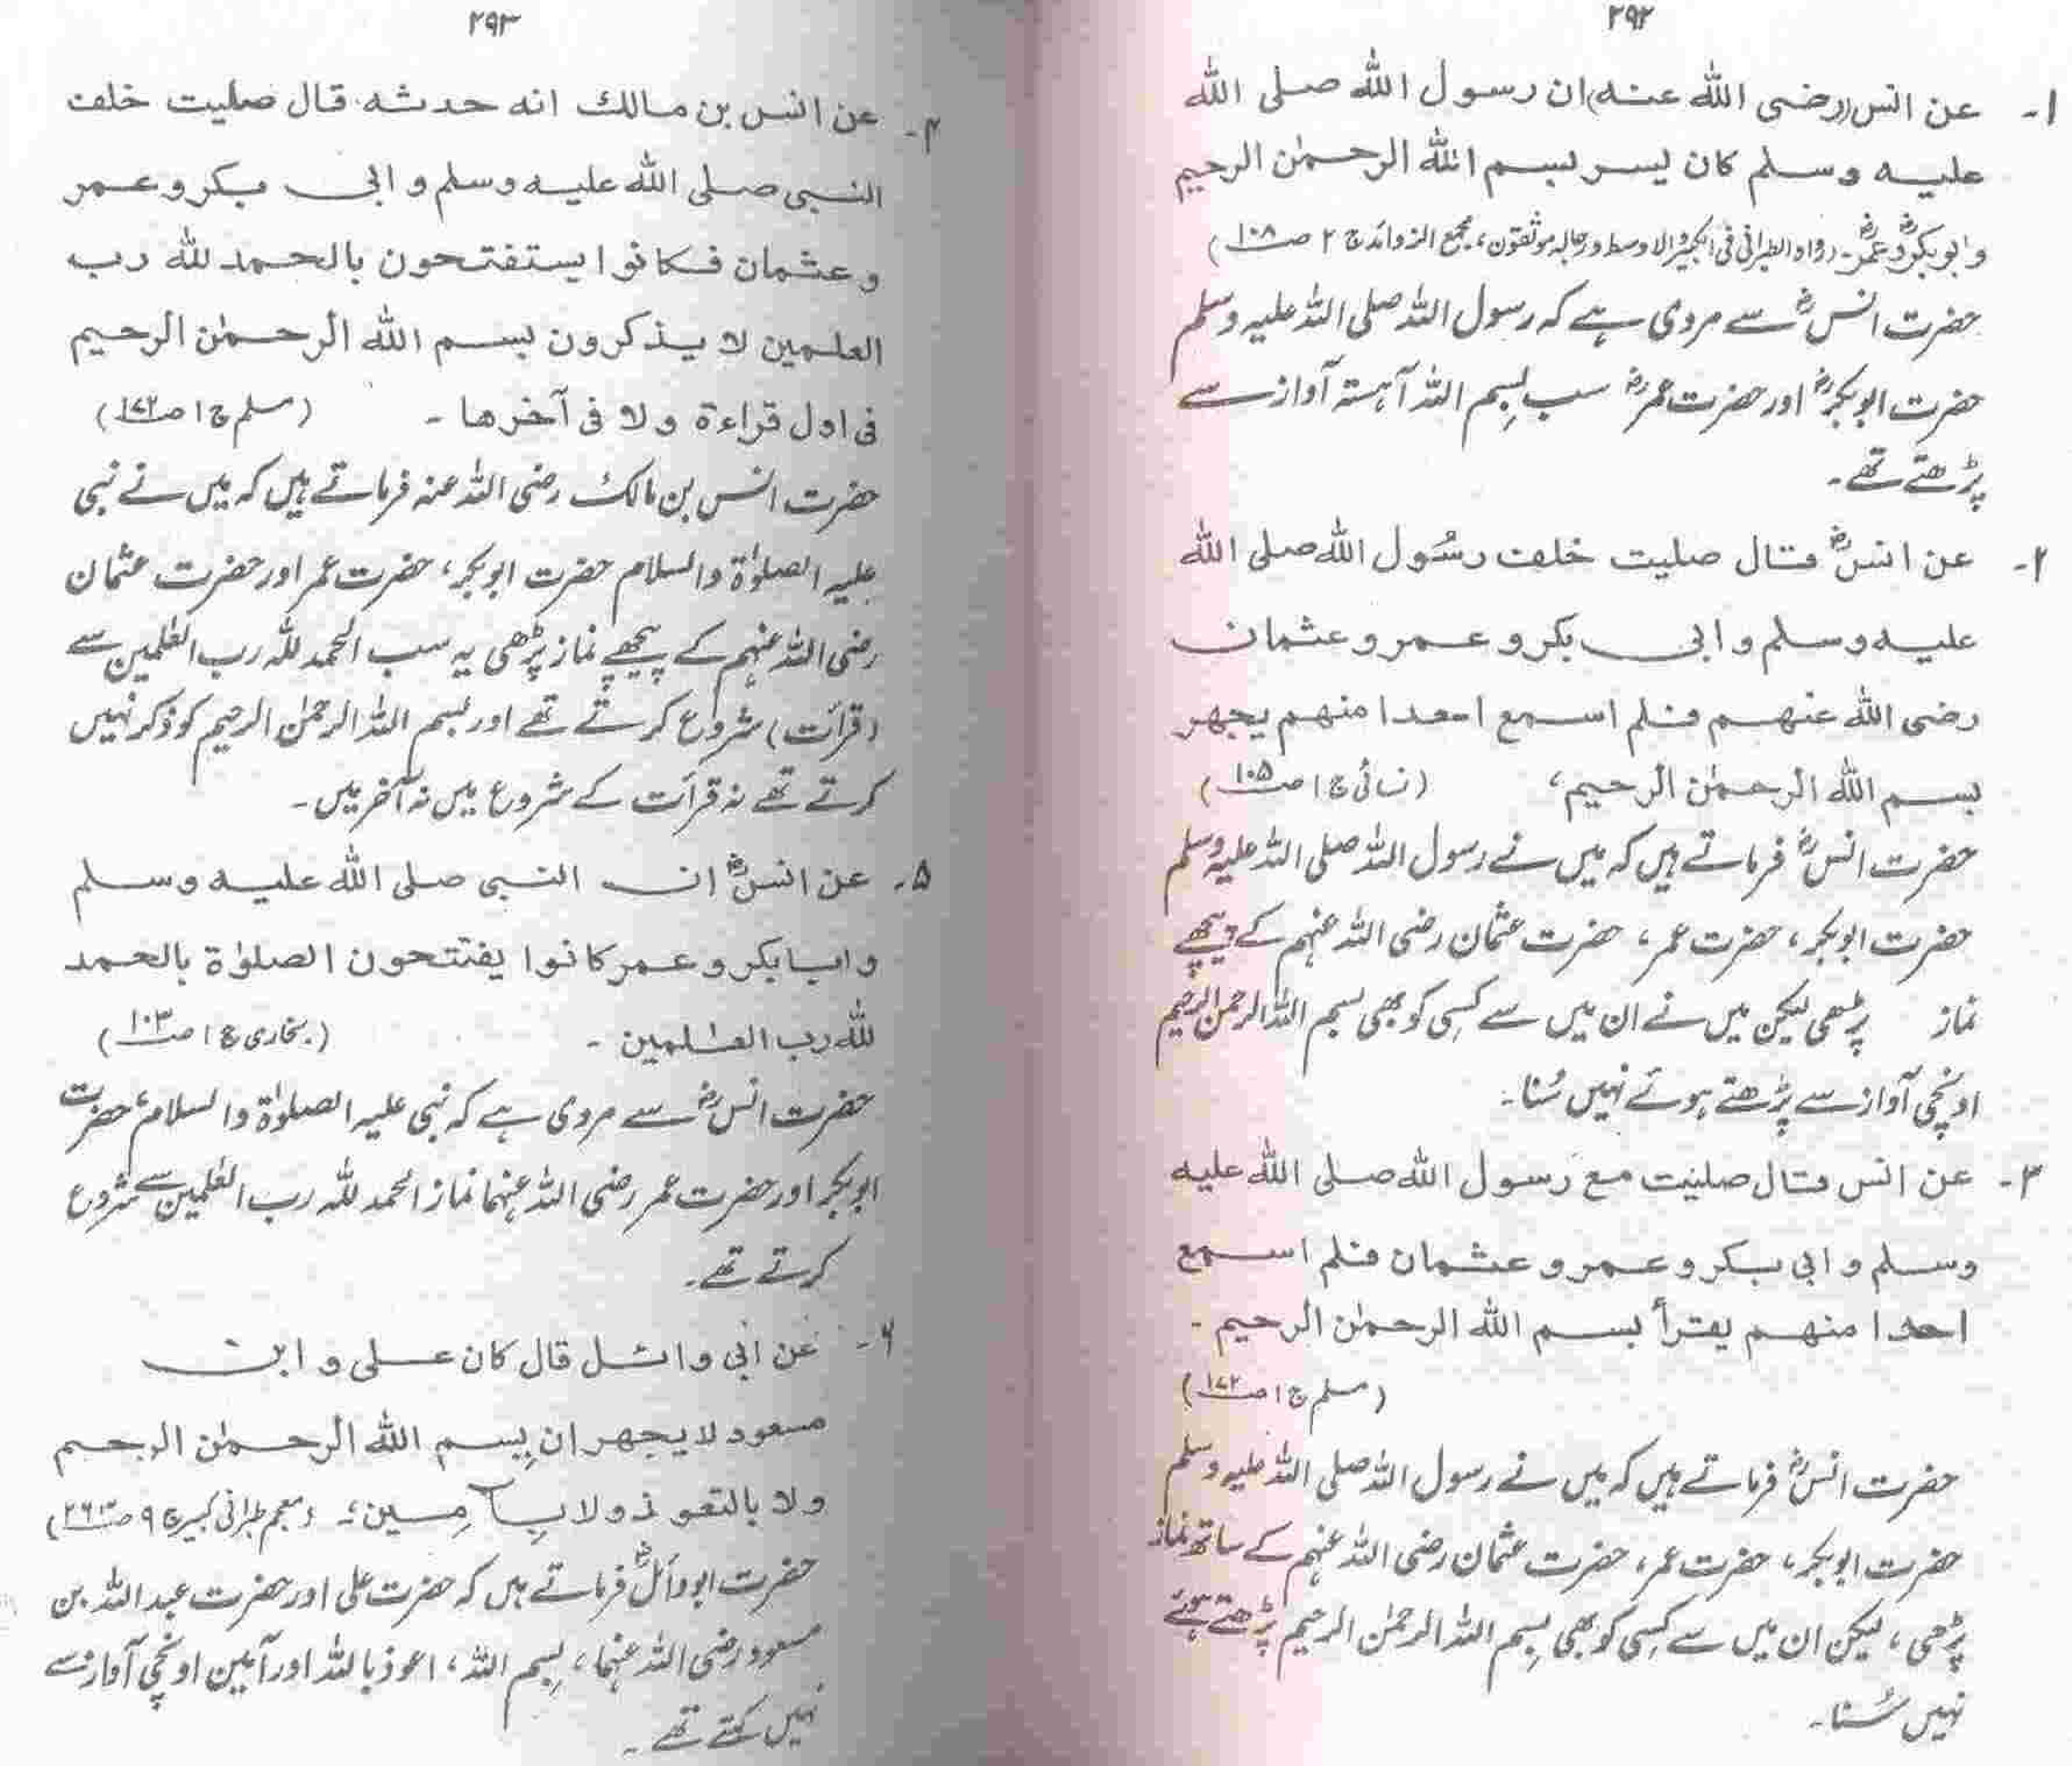 ۲۹۲
۱۔ عن انس (رضی اللہ عنہ) ان رسول اللہ صلی اللہ
علیہ وسلم کان یسر بسم اللہ الرحمٰن الرحیم
وابوبکرؓ وعمرؓ۔ (رواہ الطبرانی فی الکبیر والاوسط ورجالہ موثقون، مجمع الزوائد ج ۲ صـ۱۰۸)
حضرت انسؓ سے مروی ہے کہ رسول اللہ صلی اللہ علیہ وسلم
حضرت ابوبکرؓ اور حضرت عمرؓ سب بِسم اللہ آہستہ آواز سے
پڑھتے تھے۔
۲۔ عن انسؓ قال صلیت خلف رسُول اللہ صلی اللہ
علیہ وسلم وابی بکر و عمر و عثمان
رضی اللہ عنہم فلم اسمع احدا منہم یجہر
بسم اللہ الرحمٰن الرحیم، (نسائی ج ۱ صـ۱۰۵)
حضرت انسؓ فرماتے ہیں کہ میں نے رسول اللہ صلی اللہ علیہ وسلم
حضرت ابوبکر، حضرت عمر، حضرت عثمان رضی اللہ عنہم کے پیچھے
نماز پڑھی لیکن میں نے ان میں سے کسی کو بھی بسم اللہ الرحمٰن الرحیم
اونچی آواز سے پڑھتے ہوئے نہیں سُنا۔
۳۔ عن انس قال صلیت مع رسول اللہ صلی اللہ علیہ
وسلم وابی بکر و عمر و عثمان فلم اسمع
احدا منہم یقرأ بسم اللہ الرحمٰن الرحیم۔
(مسلم ج ۱ صـ۱۷۲)
حضرت انسؓ فرماتے ہیں کہ میں نے رسول اللہ صلی اللہ علیہ وسلم
حضرت ابوبکر، حضرت عمر، حضرت عثمان رضی اللہ عنہم کے ساتھ نماز
پڑھی، لیکن ان میں سے کسی کو بھی بِسم اللہ الرحمٰن الرحیم پڑھتے ہوئے
نہیں سُنا۔
۲۹۳
۴۔ عن انس بن مالک انہ حدثہ قال صلیت خلف
النبی صلی اللہ علیہ وسلم و ابی بکر و عمر
و عثمان فکانوا یستفتحون بالحمد للہ رب
العلمین لا یذکرون بسم اللہ الرحمٰن الرحیم
فی اول قراءۃ ولا فی آخرھا۔ (مسلم ج ۱ صـ۱۷۲)
حضرت انس بن مالک رضی اللہ عنہ فرماتے ہیں کہ میں نے نبی
علیہ الصلوٰۃ والسلام حضرت ابوبکر، حضرت عمر اور حضرت عثمان
رضی اللہ عنہم کے پیچھے نماز پڑھی یہ سب الحمد للہ رب العٰلمین سے
(قرأت) شروع کرتے تھے اور بسم اللہ الرحمٰن الرحیم کو ذکر نہیں
کرتے تھے نہ قرأت کے شروع میں نہ آخر میں۔
۵۔ عن انسؓ ان النبی صلی اللہ علیہ وسلم
و ابا بکر و عمر کانوا یفتتحون الصلوٰۃ بالحمد
للہ رب العٰلمین۔ (بخاری ج ۱ صـ۱۰۳)
حضرت انسؓ سے مروی ہے کہ نبی علیہ الصلوٰۃ والسلام، حضرت
ابوبکر اور حضرت عمر رضی اللہ عنہما نماز الحمد للہ رب العٰلمین سے شروع
کرتے تھے۔
۶۔ عن ابی وائل قال کان علی و ابن
مسعود لا یجھران بِبسم اللہ الرحمٰن الرحیم
ولا بالتعوذ ولا بِآمِین، (معجم طبرانی کبیر ج ۹ صـ۲۶۲)
حضرت ابووائلؓ فرماتے ہیں کہ حضرت علی اور حضرت عبداللہ بن
مسعود رضی اللہ عنہما، بِسم اللہ، اعوذ باللہ اور آمین اونچی آواز سے
نہیں کہتے تھے۔